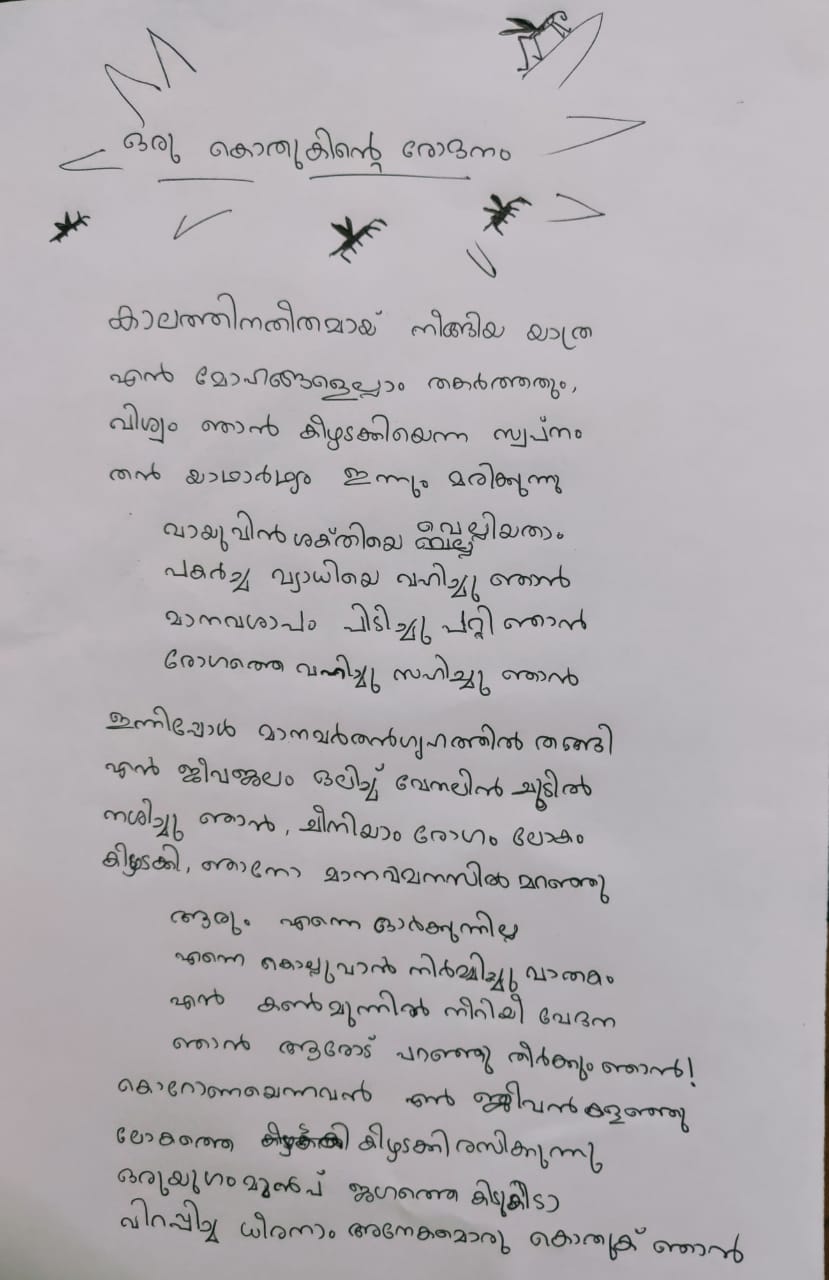 ഒരു കൊതുകിന്റെ രോദനം
കാലത്തിനതീതമായ് നീങ്ങിയ യാത്ര
എൻ മോഹങ്ങളെല്ലാം തകർത്തതും,
വിശ്വം ഞാൻ കീഴടക്കിയെന്ന സ്വപ്നം
തൻ യാഥാർഥ്യം ഇന്നും മരിക്കുന്നു
വായുവിൻ ശക്തിയെ വെല്ലിയതാം
പകർച്ച വ്യാധിയെ വഹിച്ചു ഞാൻ
മാനവശാപം പിടിച്ചു പറ്റി ഞാൻ
രോഗത്തെ വഹിച്ചു സഹിച്ചു ഞാൻ
ഇന്നിപ്പോൾ മാനവർതൻഗൃഹത്തിൽ തങ്ങി
എൻ ജീവജലം ഒലിച്ച് വേനലിൻ ചൂടിൽ
നശിച്ചു ഞാൻ, ചീനിയാം രോഗം ലോകം
കീഴടക്കി, ഞാനോ മാനവമനസിൽ മറഞ്ഞു
ആരും എന്നെ ഓർക്കുന്നില്ല
എന്നെ കൊല്ലുവാൻ നിർമ്മിച്ചു വാതകം
എൻ കൺമുന്നിൽ നീറിയീ വേദന
ഞാൻ ആരോട് പറഞ്ഞു തീർക്കും ഞാൻ!
കൊറോണയെന്നവൻ എൻ ജീവൻ കളഞ്ഞു
ലോകത്തെ കീഴടക്കി രസിക്കുന്നു
ഒരുയുഗം മുൻപ് ജഗത്തെ കിടുകിടാ
വിറപ്പിച്ച ധീരനാം അനേകമൊരു കൊതുക് ഞാൻ